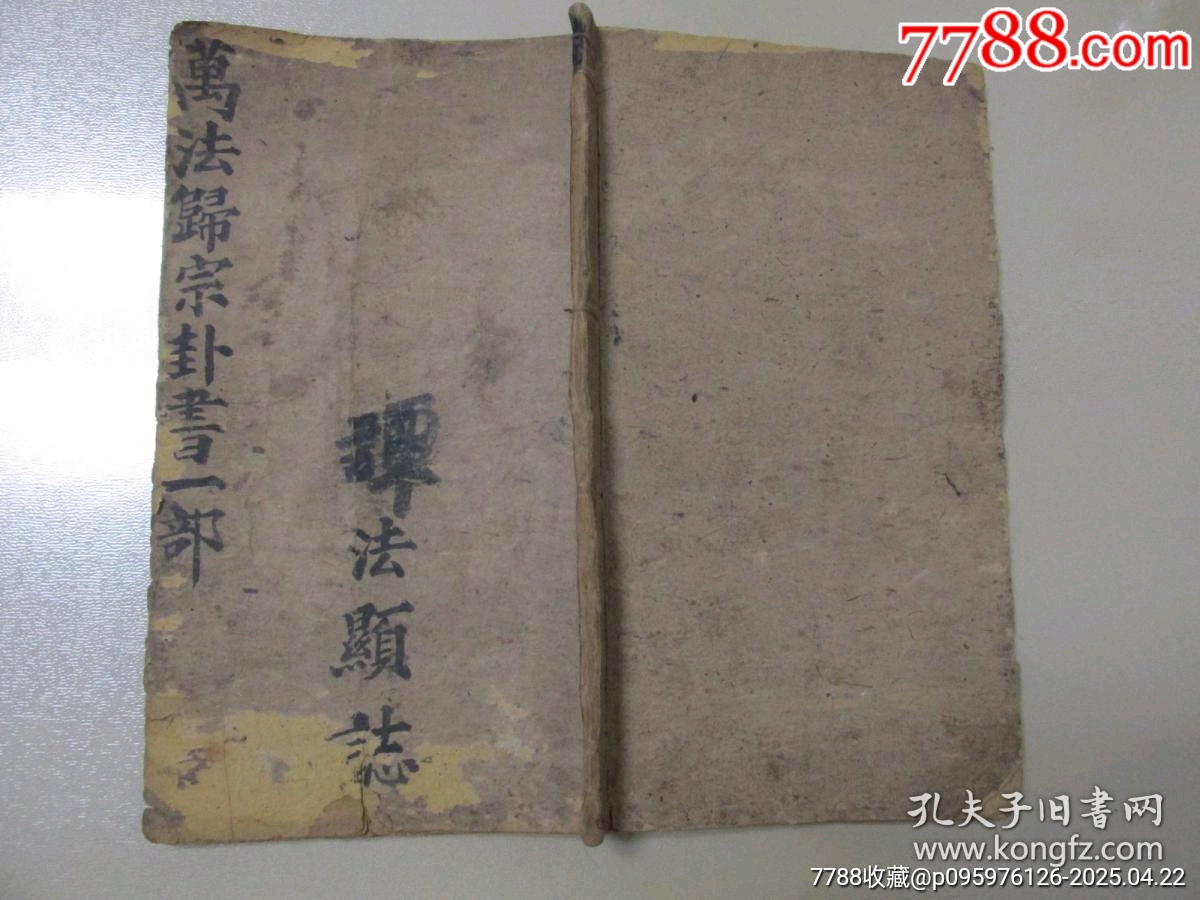 萬法歸宗卦書一部
譚法顯誌
7788.com
孔夫子旧书网
www.kongfz.com
7788收藏@p095976126-2025.04.22